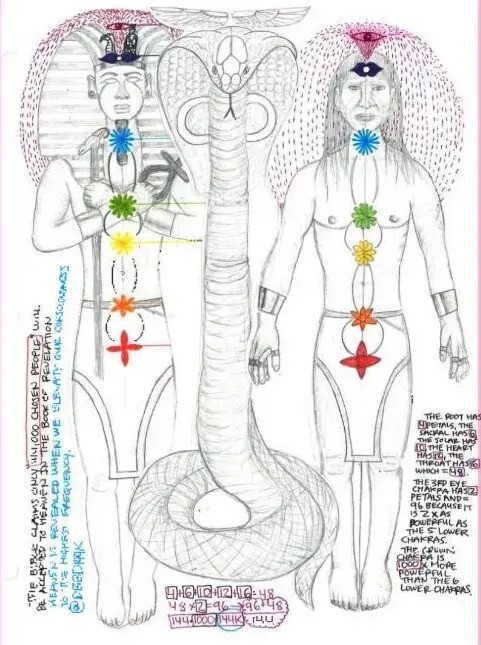 "THE BIBLE CLAIMS ONLY "144,000 CHOSEN PEOPLE" WILL
BE ACCEPTED TO HEAVEN IN THE BOOK OF REVELATION
HEAVEN IS REVEALED WHEN WE ELEVATE OUR CONSCIOUSNESS
TO THE HIGHEST FREQUENCY.
THE ROOT HAS
4 PETALS, THE
SACRAL HAS 6
THE SOLAR HAS
10 THE HEART
HAS 12, THE
THROAT HAS 16
WHICH = 48.
THE 3RD EYE
CHAKRA HAS 2
PETALS AND =
96 BECAUSE IT
IS 2 X AS
POWERFUL AS
THE 5 LOWER
CHAKRAS.
THE CROWN
CHAKRA IS
1000 X MORE
POWERFUL
THAN THE 6
LOWER CHAKRAS.
4+6+10+12+16=48
48 X 2 = 96 96+48
144 1000 144K 144